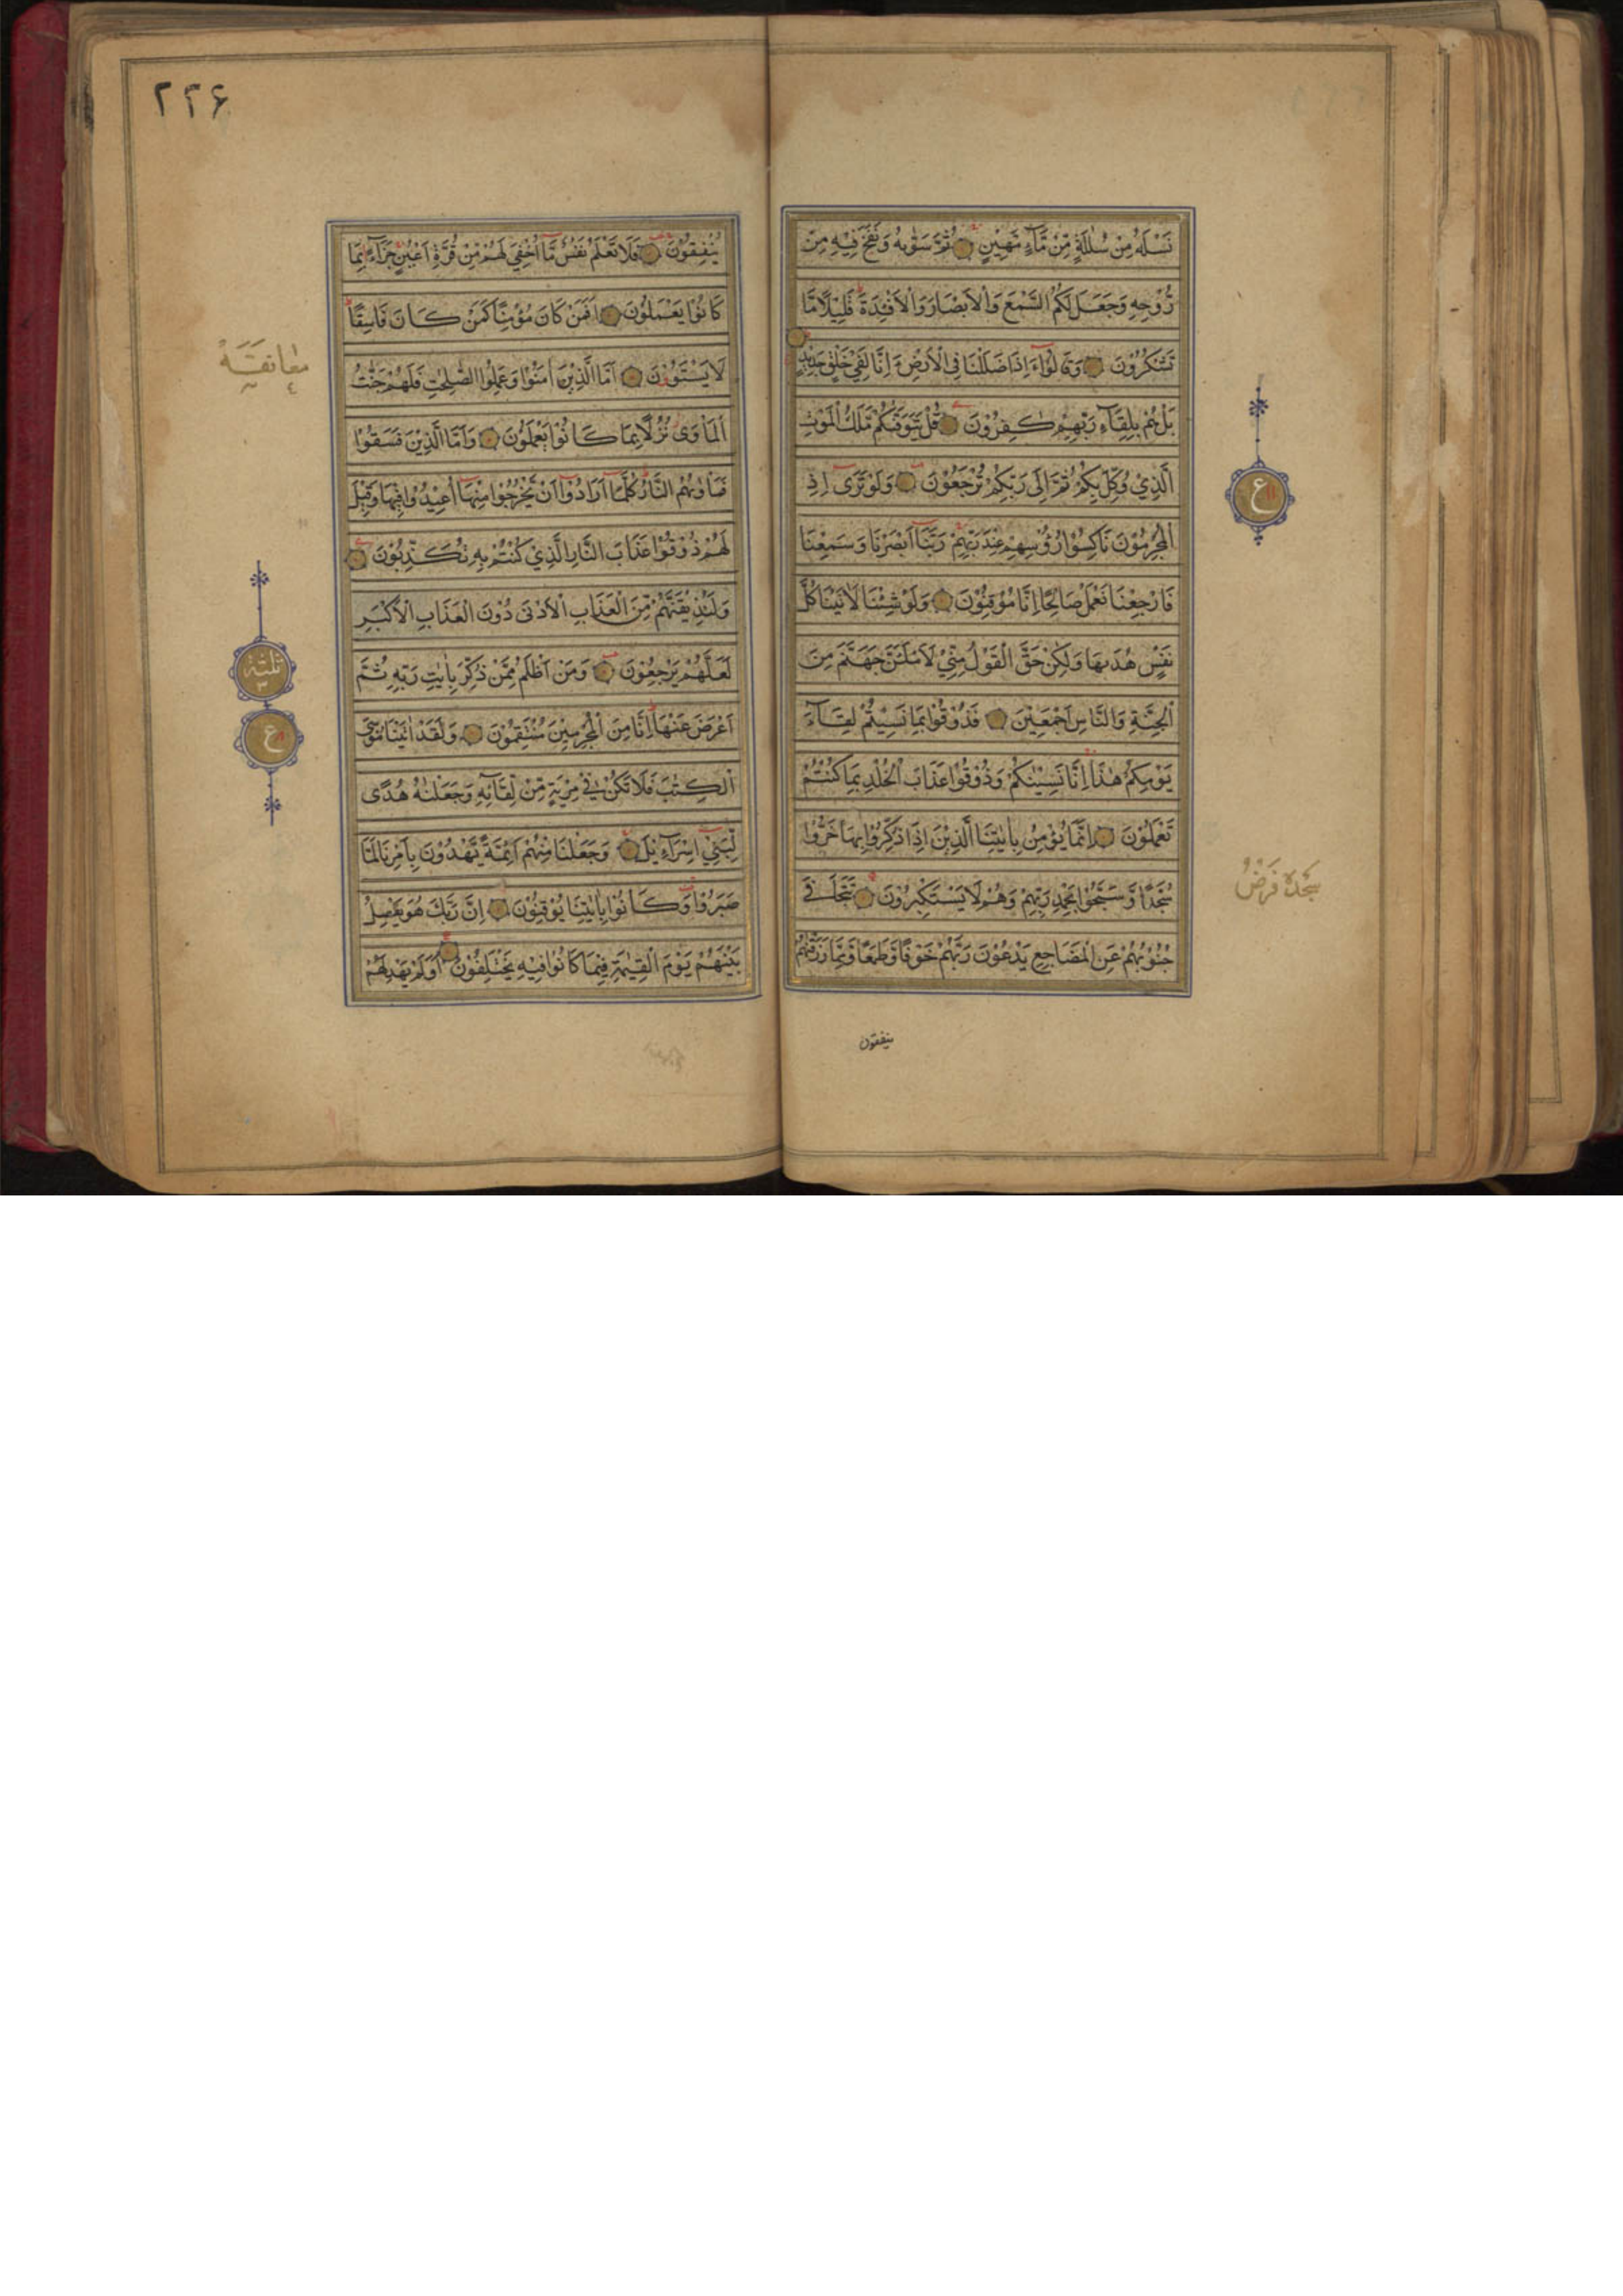 نَسْلَهُ مِنْ سُلٰلَةٍ مِّنْ مَّآءٍ مَّهِيْنٍ ثُمَّ سَوّٰىهُ وَنَفَخَ فِيْهِ مِنْ
رُّوْحِهٖ وَجَعَلَ لَكُمُ السَّمْعَ وَالْاَبْصَارَ وَالْاَفْئِدَةَ قَلِيْلًا مَّا
تَشْكُرُوْنَ وَقَالُوْٓا ءَاِذَا ضَلَلْنَا فِى الْاَرْضِ ءَاِنَّا لَفِىْ خَلْقٍ جَدِيْدٍ
بَلْ هُمْ بِلِقَآءِ رَبِّهِمْ كٰفِرُوْنَ قُلْ يَتَوَفّٰىكُمْ مَّلَكُ الْمَوْتِ
الَّذِيْ وُكِّلَ بِكُمْ ثُمَّ اِلٰى رَبِّكُمْ تُرْجَعُوْنَ وَلَوْ تَرٰٓى اِذِ
الْمُجْرِمُوْنَ نَاكِسُوْا رُءُوْسِهِمْ عِنْدَ رَبِّهِمْ رَبَّنَآ اَبْصَرْنَا وَسَمِعْنَا
فَارْجِعْنَا نَعْمَلْ صَالِحًا اِنَّا مُوْقِنُوْنَ وَلَوْ شِئْنَا لَاٰتَيْنَا كُلَّ
نَفْسٍ هُدٰىهَا وَلٰكِنْ حَقَّ الْقَوْلُ مِنِّيْ لَاَمْلَئَنَّ جَهَنَّمَ مِنَ
الْجِنَّةِ وَالنَّاسِ اَجْمَعِيْنَ فَذُوْقُوْا بِمَا نَسِيْتُمْ لِقَآءَ
يَوْمِكُمْ هٰذَا اِنَّا نَسِيْنٰكُمْ وَذُوْقُوْا عَذَابَ الْخُلْدِ بِمَا كُنْتُمْ
تَعْمَلُوْنَ اِنَّمَا يُؤْمِنُ بِاٰيٰتِنَا الَّذِيْنَ اِذَا ذُكِّرُوْا بِهَا خَرُّوْا
سُجَّدًا وَّسَبَّحُوْا بِحَمْدِ رَبِّهِمْ وَهُمْ لَا يَسْتَكْبِرُوْنَ تَتَجَافٰى
جُنُوْبُهُمْ عَنِ الْمَضَاجِعِ يَدْعُوْنَ رَبَّهُمْ خَوْفًا وَّطَمَعًا وَّمِمَّا رَزَقْنٰهُمْ
ينفقون
ع
سجدۀ فرض
۲۲۶
يُنْفِقُوْنَ فَلَا تَعْلَمُ نَفْسٌ مَّآ اُخْفِيَ لَهُمْ مِّنْ قُرَّةِ اَعْيُنٍ جَزَآءً بِمَا
كَانُوْا يَعْمَلُوْنَ اَفَمَنْ كَانَ مُؤْمِنًا كَمَنْ كَانَ فَاسِقًا
لَا يَسْتَوٗنَ اَمَّا الَّذِيْنَ اٰمَنُوْا وَعَمِلُوا الصّٰلِحٰتِ فَلَهُمْ جَنّٰتُ
الْمَاْوٰى نُزُلًا بِمَا كَانُوْا يَعْمَلُوْنَ وَاَمَّا الَّذِيْنَ فَسَقُوْا
فَمَاْوٰىهُمُ النَّارُ كُلَّمَآ اَرَادُوْٓا اَنْ يَّخْرُجُوْا مِنْهَآ اُعِيْدُوْا فِيْهَا وَقِيْلَ
لَهُمْ ذُوْقُوْا عَذَابَ النَّارِ الَّذِيْ كُنْتُمْ بِهٖ تُكَذِّبُوْنَ
وَلَنُذِيْقَنَّهُمْ مِّنَ الْعَذَابِ الْاَدْنٰى دُوْنَ الْعَذَابِ الْاَكْبَرِ
لَعَلَّهُمْ يَرْجِعُوْنَ وَمَنْ اَظْلَمُ مِمَّنْ ذُكِّرَ بِاٰيٰتِ رَبِّهٖ ثُمَّ
اَعْرَضَ عَنْهَا اِنَّا مِنَ الْمُجْرِمِيْنَ مُنْتَقِمُوْنَ وَلَقَدْ اٰتَيْنَا مُوْسَى
الْكِتٰبَ فَلَا تَكُنْ فِيْ مِرْيَةٍ مِّنْ لِّقَآئِهٖ وَجَعَلْنٰهُ هُدًى
لِّبَنِيْٓ اِسْرَآءِيْلَ وَجَعَلْنَا مِنْهُمْ اَئِمَّةً يَّهْدُوْنَ بِاَمْرِنَا لَمَّا
صَبَرُوْا وَكَانُوْا بِاٰيٰتِنَا يُوْقِنُوْنَ اِنَّ رَبَّكَ هُوَ يَفْصِلُ
بَيْنَهُمْ يَوْمَ الْقِيٰمَةِ فِيْمَا كَانُوْا فِيْهِ يَخْتَلِفُوْنَ اَوَلَمْ يَهْدِ لَهُمْ
معانقة
ثلثة
۳
ع